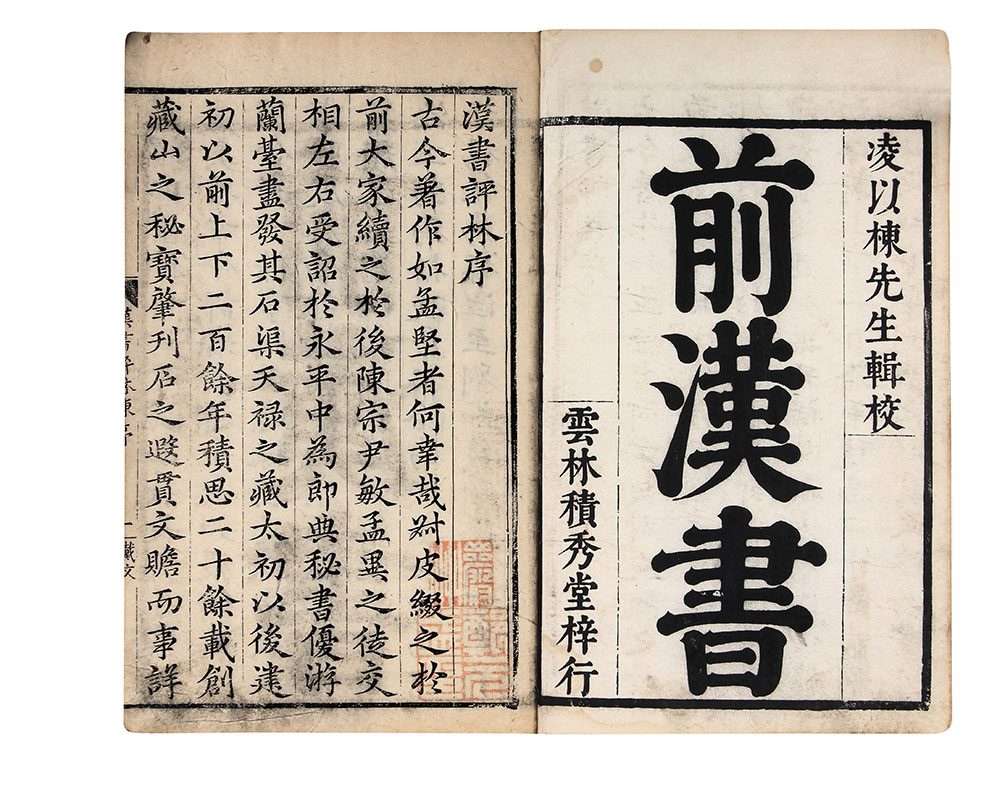 凌以棟先生輯校
前漢書
雲林積秀堂梓行
漢書評林序
古今著作如孟堅者何幸哉尉皮綴之於
前大家續之於後陳宗尹敏孟異之徒交
相左右受詔於永平中為郎典秘書優游
蘭臺盡發其石渠天禄之藏太初以後建
初以前上下二百餘年積思二十餘載創
藏山之秘寶肇刊石之遐貫文贍而事詳
漢書評林陳序